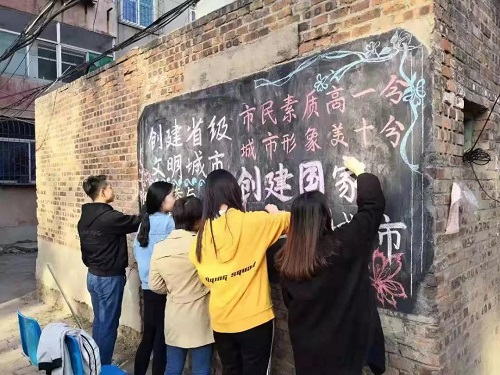 创建省级
文明城市
市民素质高一分
城市形象美十分
创建国家
市
SQUAD